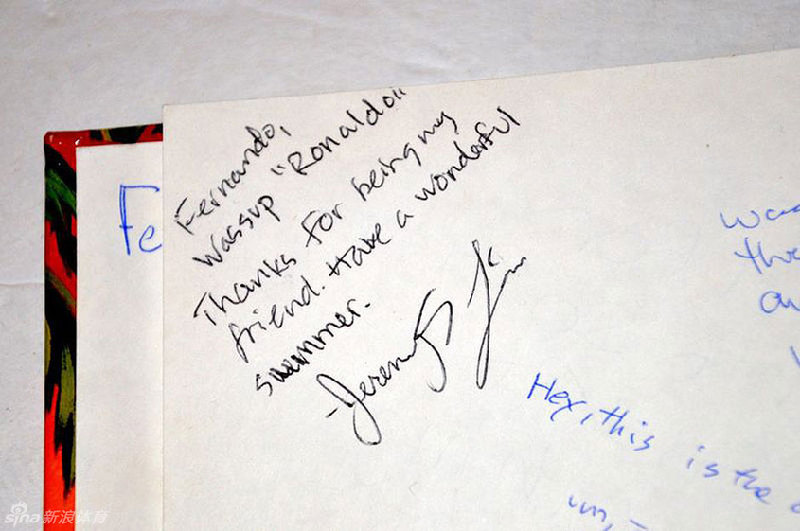 Fernando,
Wassup "Ronaldo"
Thanks for being my
friend. Have a wonderful
summer.
-Jeremy Lin
Fe
the
Hey, this is the
um,
sina新浪体育